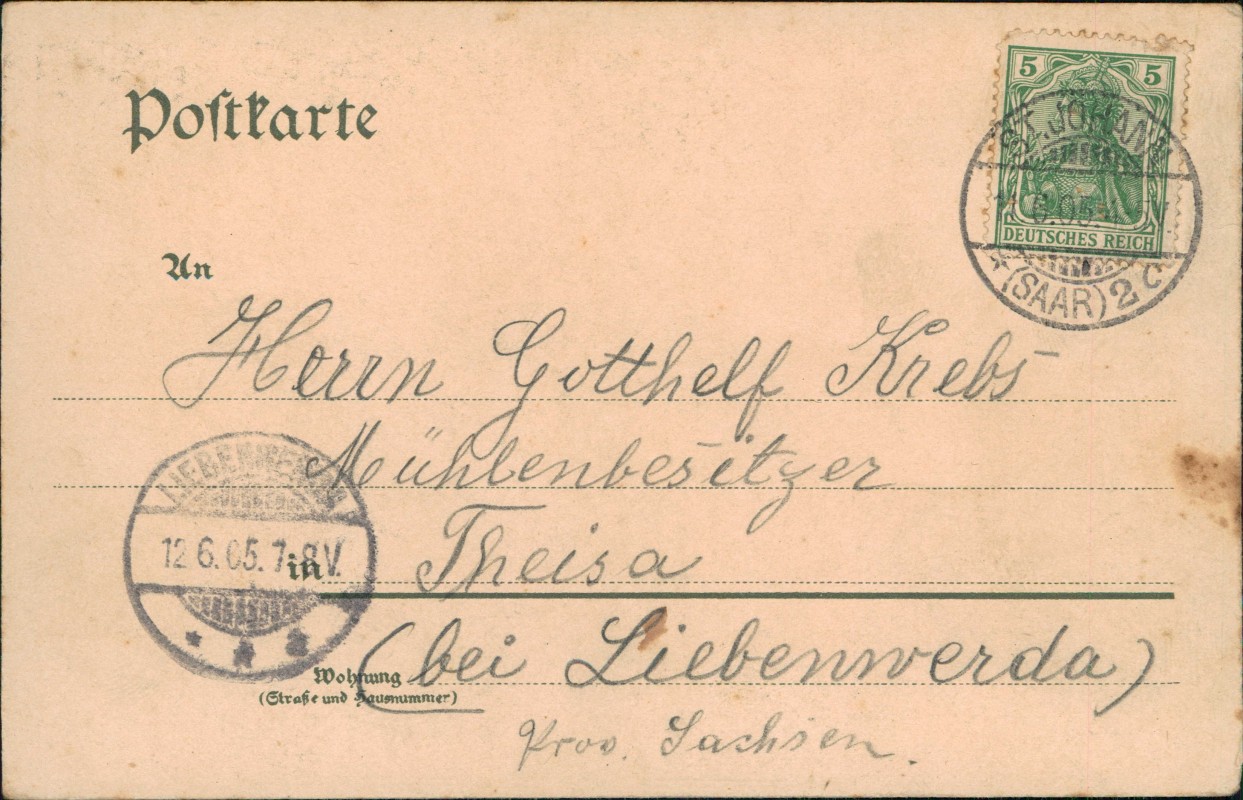 Postkarte
5 5
DEUTSCHES REICH
ST. JOHANN
6.05.
* (SAAR) 2 c
An
Herrn Gotthelf Krebs
Mühlenbesitzer
in Theisa
(bei Liebenwerda)
Wohnung
(Straße und Hausnummer)
Prov. Sachsen.
LIEBENWERDA
12.6.05.7-8V.